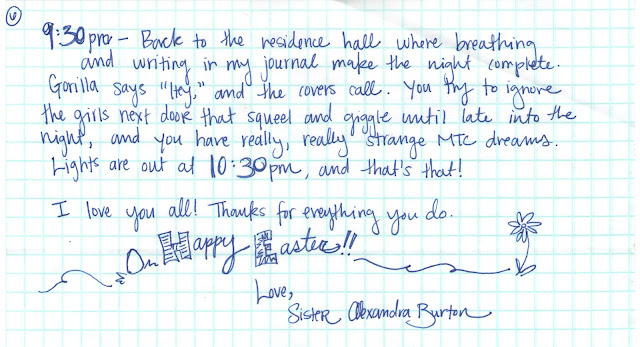 6
9:30pm - Back to the residence hall where breathing
and writing in my journal make the night complete.
Gorilla says "Hey," and the covers call. You try to ignore
the girls next door that squeel and giggle until late into the
night, and you have really, really strange MTC dreams.
Lights are out at 10:30pm, and that's that!
I love you all! Thanks for everything you do.
Oh Happy Easter!!
Love,
Sister Alexandra Burton